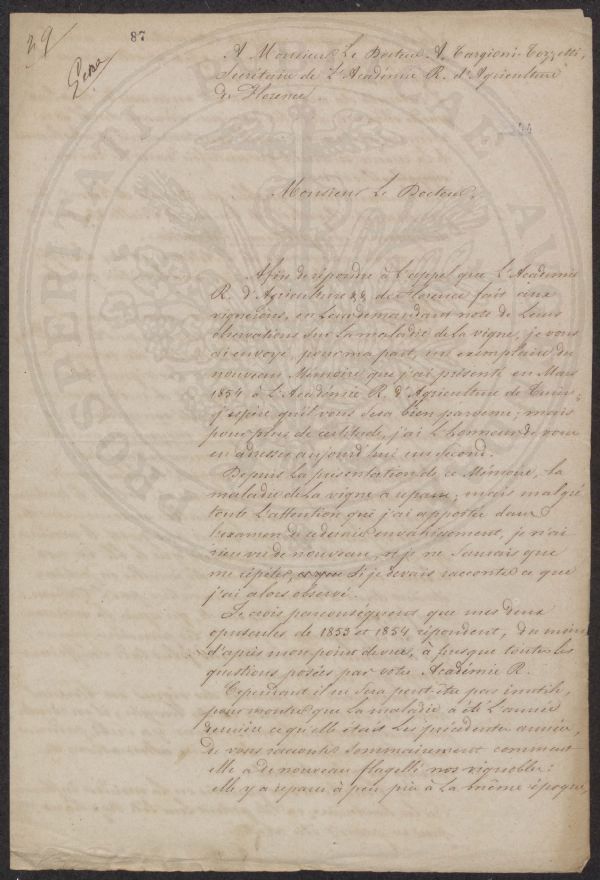 29
87
A Monsieur Le Docteur A. Targioni-Tozzetti,
Secrétaire de L'Académie R. d'Agriculture
de Florence.
Monsieur Le Docteur,
Afin de répondre à l'appel que L'Académie
R. d'Agriculture de Florence fais aux
vignerons, en leur demandant note de leurs
observations sur la maladie de la vigne, je vous
ai envoyé, pour ma part, un exemplaire du
nouveau Mémoire que j'ai présenté en Mars
1854 à L'Académie R. d'Agriculture de Turin;
j'espère qu'il vous sera bien parvenu; mais
pour plus de certitude, j'ai l'honneur de vous
en adresser aujourd'hui un second.
Depuis la présentation de ce Mémoire, la
maladie de la vigne à reparu; mais malgré
toute l'attention que j'ai apportée dans
l'examen de ce dernier envahissement, je n'ai
rien vu de nouveau, et je ne saurais que
me répéter, si je devais raconter ce que
j'ai alors observé.
Je crois parconséquent que mes deux
opuscules de 1853 et 1854 répondent, du moins
d'après mon point de vue, à presque toutes les
questions posées par votre Académie R.
Cependant il ne sera peut-être pas inutile,
pour montrer que la maladie a été l'année
dernière ce qu'elle était les précédentes années,
de vous raconter sommairement comment
elle a de nouveau flagellé nos vignobles:
elle y a reparu à peu près à la même époque,
PROSPERITATI